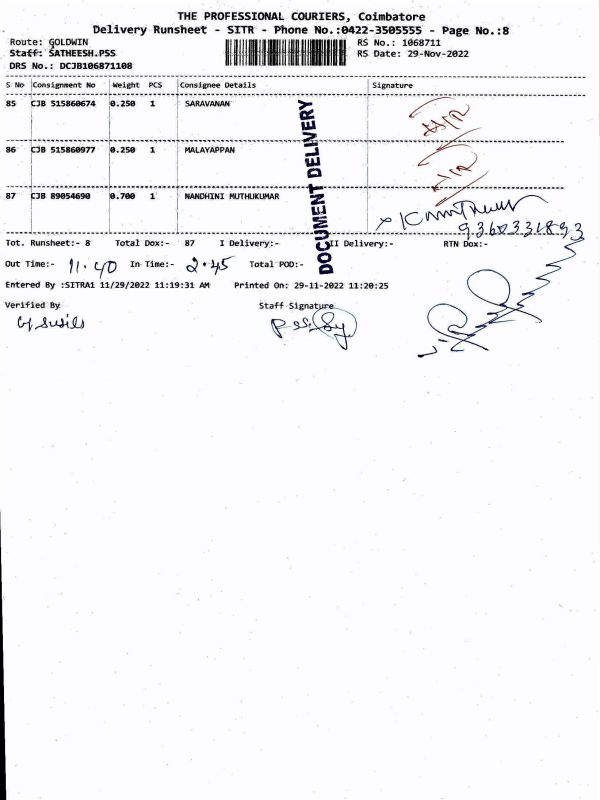 THE PROFESSIONAL COURIERS, Coimbatore
Delivery Runsheet - SITR - Phone No.:0422-3505555 - Page No.:8
Route: GOLDWIN RS No.: 1068711
Staff: SATHEESH.PSS RS Date: 29-Nov-2022
DRS No.: DCJB106871108
S No Consignment No Weight PCS Consignee Details Signature
85 CJB 515860674 0.250 1 SARAVANAN
86 CJB 515860977 0.250 1 MALAYAPPAN
87 CJB 89054690 0.700 1 NANDHINI MUTHUKUMAR
9360331893
DOCUMENT DELIVERY
Tot. Runsheet:- 8 Total Dox:- 87 I Delivery:- II Delivery:- RTN Dox:-
Out Time:- 11.40 In Time:- 2.45 Total POD:-
Entered By :SITRA1 11/29/2022 11:19:31 AM Printed On: 29-11-2022 11:20:25
Verified By Staff Signature